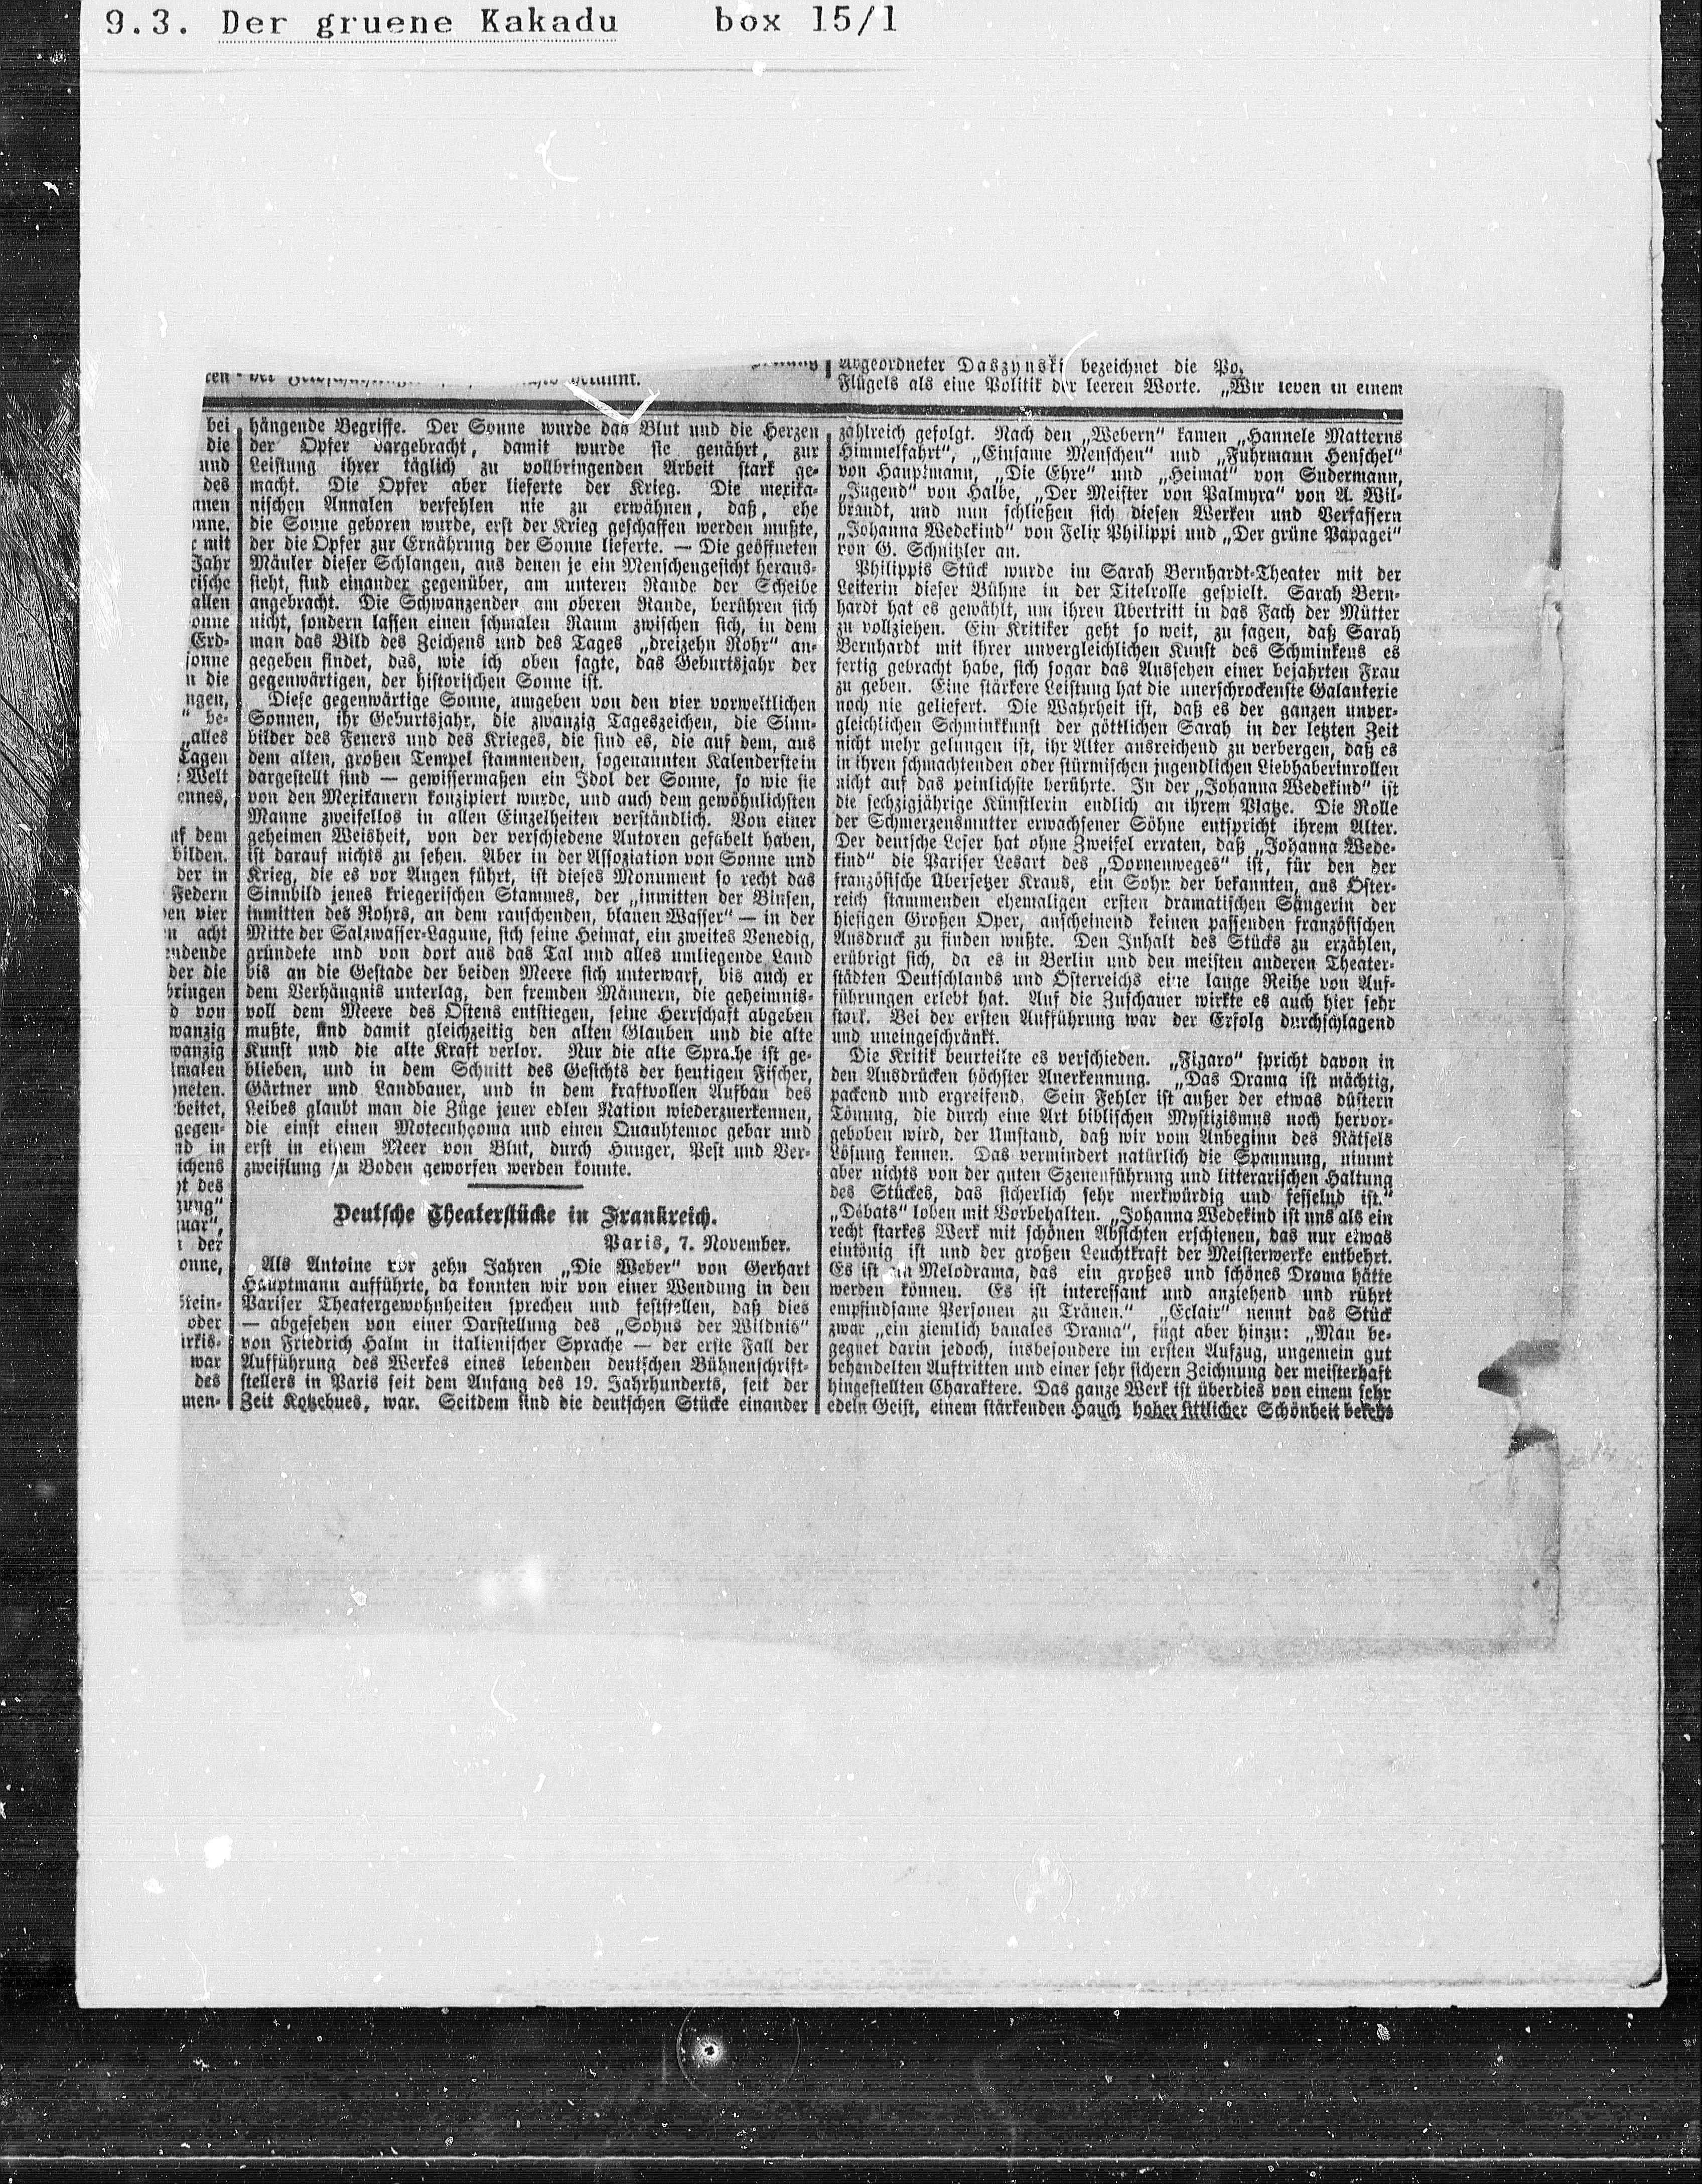 9.3. Der gruene Kakadu box 15/1
Abgeordneter Daszynski bezeichnet die
Flügels als eine Politik der leeren Worte. „Wir leben in einem
bei
die
und
des
mit
Jahr
allen
Erd-
sonne
die
be-
„alles
Lagen
Welt
dem
bilden.
der in
Federn
vier
acht
der die
bringen
von
wanzig
wanzig
in
des
der
oder
war
des
men-
hängende Begriffe. Der Sonne wurde das Blut und die Herzen
der Opfer dargebracht, damit wurde sie genährt, zur
Leistung ihrer täglich zu vollbringenden Arbeit stark ge-
macht. Die Opfer aber lieferte der Krieg. Die mexika-
nischen Annalen verfehlen nie zu erwähnen, daß, ehe
die Sonne geboren wurde, erst der Krieg geschaffen werden mußte,
der die Opfer zur Ernährung der Sonne lieferte. — Die geöffneten
Mäuler dieser Schlangen, aus denen je ein Menschengesicht heraus-
sieht, sind einander gegenüber, am unteren Rande der Scheibe
angebracht. Die Schwanzenden am oberen Rande, berühren sich
nicht, sondern lassen einen schmalen Raum zwischen sich, in dem
man das Bild des Zeichens und des Tages „dreizehn Rohr“ an-
gegeben findet, das, wie ich oben sagte, das Geburtsjahr der
gegenwärtigen, der historischen Sonne ist.
Diese gegenwärtige Sonne, umgeben von den vier vorweltlichen
Sonnen, ihr Geburtsjahr, die zwanzig Tageszeichen, die Sinn-
bilder des Feuers und des Krieges, die sind es, die auf dem, aus
dem alten, großen Tempel stammenden, sogenannten Kalenderstein
dargestellt sind — gewissermaßen ein Idol der Sonne, so wie sie
von den Mexikanern konzipiert wurde, und auch dem gewöhnlichsten
Manne zweifellos in allen Einzelheiten verständlich. Von einer
geheimen Weisheit, von der verschiedene Autoren gefabelt haben,
ist darauf nichts zu sehen. Aber in der Assoziation von Sonne und
Krieg, die es vor Augen führt, ist dieses Monument so recht das
Sinnbild jenes kriegerischen Stammes, der „inmitten der Binsen,
inmitten des Rohrs, an dem rauschenden, blauen Wasser“ — in der
Mitte der Salzwasser-Lagune, sich seine Heimat, ein zweites Venedig,
gründete und von dort aus das Tal und alles umliegende Land
bis an die Gestade der beiden Meere sich unterwarf, bis auch er
dem Verhängnis unterlag, den fremden Männern, die geheimnis-
voll dem Meere des Ostens entstiegen, seine Herrschaft abgeben
mußte, und damit gleichzeitig den alten Glauben und die alte
Kunst und die alte Kraft verlor. Nur die alte Sprache ist ge-
blieben, und in dem Schnitt des Gesichts der heutigen Fischer,
Gärtner und Landbauer, und in dem kraftvollen Aufbau des
Leibes glaubt man die Züge jener edlen Nation wiederzuerkennen,
die einst einen Motecuhçoma und einen Quauhtemoc gebar und
erst in einem Meer von Blut, durch Hunger, Pest und Ver-
zweiflung zu Boden geworfen werden konnte.
Deutsche Theaterstücke in Frankreich.
Paris, 7. November.
Als Antoine vor zehn Jahren „Die Weber“ von Gerhart
Hauptmann aufführte, da konnten wir von einer Wendung in den
Pariser Theatergewohnheiten sprechen und feststellen, daß dies
— abgesehen von einer Darstellung des „Sohns der Wildnis“
von Friedrich Halm in italienischer Sprache — der erste Fall der
Aufführung des Werkes eines lebenden deutschen Bühnenschrift-
stellers in Paris seit dem Anfang des 19. Jahrhunderts, seit der
Zeit Kotzebues, war. Seitdem sind die deutschen Stücke einander
zahlreich gefolgt. Nach den „Webern“ kamen „Hannele Matterns
Himmelfahrt“, „Einsame Menschen“ und „Fuhrmann Henschel“
von Hauptmann, „Die Ehre“ und „Heimat“ von Sudermann,
„Jugend“ von Halbe, „Der Meister von Palmyra“ von A. Wil-
brandt, und nun schließen sich diesen Werken und Verfassern
„Johanna Wedekind“ von Felix Philippi und „Der grüne Papagei“
von G. Schnitzler an.
Philippis Stück wurde im Sarah Bernhardt-Theater mit der
Leiterin dieser Bühne in der Titelrolle gespielt. Sarah Bern-
hardt hat es gewählt, um ihren Übertritt in das Fach der Mütter
zu vollziehen. Ein Kritiker geht so weit, zu sagen, daß Sarah
Bernhardt mit ihrer unvergleichlichen Kunst des Schminkens es
fertig gebracht habe, sich sogar das Aussehen einer bejahrten Frau
zu geben. Eine stärkere Leistung hat die unerschrockenste Galanterie
noch nie geliefert. Die Wahrheit ist, daß es der ganzen unver-
gleichlichen Schminkkunst der göttlichen Sarah in der letzten Zeit
nicht mehr gelungen ist, ihr Alter ausreichend zu verbergen, daß es
in ihren schmachtenden oder stürmischen jugendlichen Liebhaberinrollen
nicht auf das peinlichste berührte. In der „Johanna Wedekind“ ist
die sechzigjährige Künstlerin endlich an ihrem Platze. Die Rolle
der Schmerzensmutter erwachsener Söhne entspricht ihrem Alter.
Der deutsche Leser hat ohne Zweifel erraten, daß „Johanna Wede-
kind“ die Pariser Lesart des „Dornenweges“ ist, für den der
französische Übersetzer Kraus, ein Sohn der bekannten, aus Öster-
reich stammenden ehemaligen ersten dramatischen Sängerin der
hiesigen Großen Oper, anscheinend keinen passenden französischen
Ausdruck zu finden wußte. Den Inhalt des Stücks zu erzählen,
erübrigt sich, da es in Berlin und den meisten anderen Theater-
städten Deutschlands und Österreichs eine lange Reihe von Auf-
führungen erlebt hat. Auf die Zuschauer wirkte es auch hier sehr
stark. Bei der ersten Aufführung war der Erfolg durchschlagend
und uneingeschränkt.
Die Kritik beurteilte es verschieden. „Figaro“ spricht davon in
den Ausdrücken höchster Anerkennung. „Das Drama ist mächtig,
packend und ergreifend. Sein Fehler ist außer der etwas düstern
Tönung, die durch eine Art biblischen Mystizismus noch hervor-
gehoben wird, der Umstand, daß wir vom Anbeginn des Rätsels
Lösung kennen. Das vermindert natürlich die Spannung, nimmt
aber nichts von der guten Szenenführung und litterarischen Haltung
des Stückes, das sicherlich sehr merkwürdig und fesselnd ist.“
„Débats“ loben mit Vorbehalten. „Johanna Wedekind ist uns als ein
recht starkes Werk mit schönen Absichten erschienen, das nur etwas
eintönig ist und der großen Leuchtkraft der Meisterwerke entbehrt.
Es ist ein Melodrama, das ein großes und schönes Drama hätte
werden können. Es ist interessant und anziehend und rührt
empfindsame Personen zu Tränen.“ „Eclair“ nennt das Stück
zwar „ein ziemlich banales Drama“, fügt aber hinzu: „Man be-
gegnet darin jedoch, insbesondere im ersten Aufzug, ungemein gut
behandelten Auftritten und einer sehr sichern Zeichnung der meisterhaft
hingestellten Charaktere. Das ganze Werk ist überdies von einem sehr
edeln Geist, einem stärkenden Hauch hoher sittlicher Schönheit